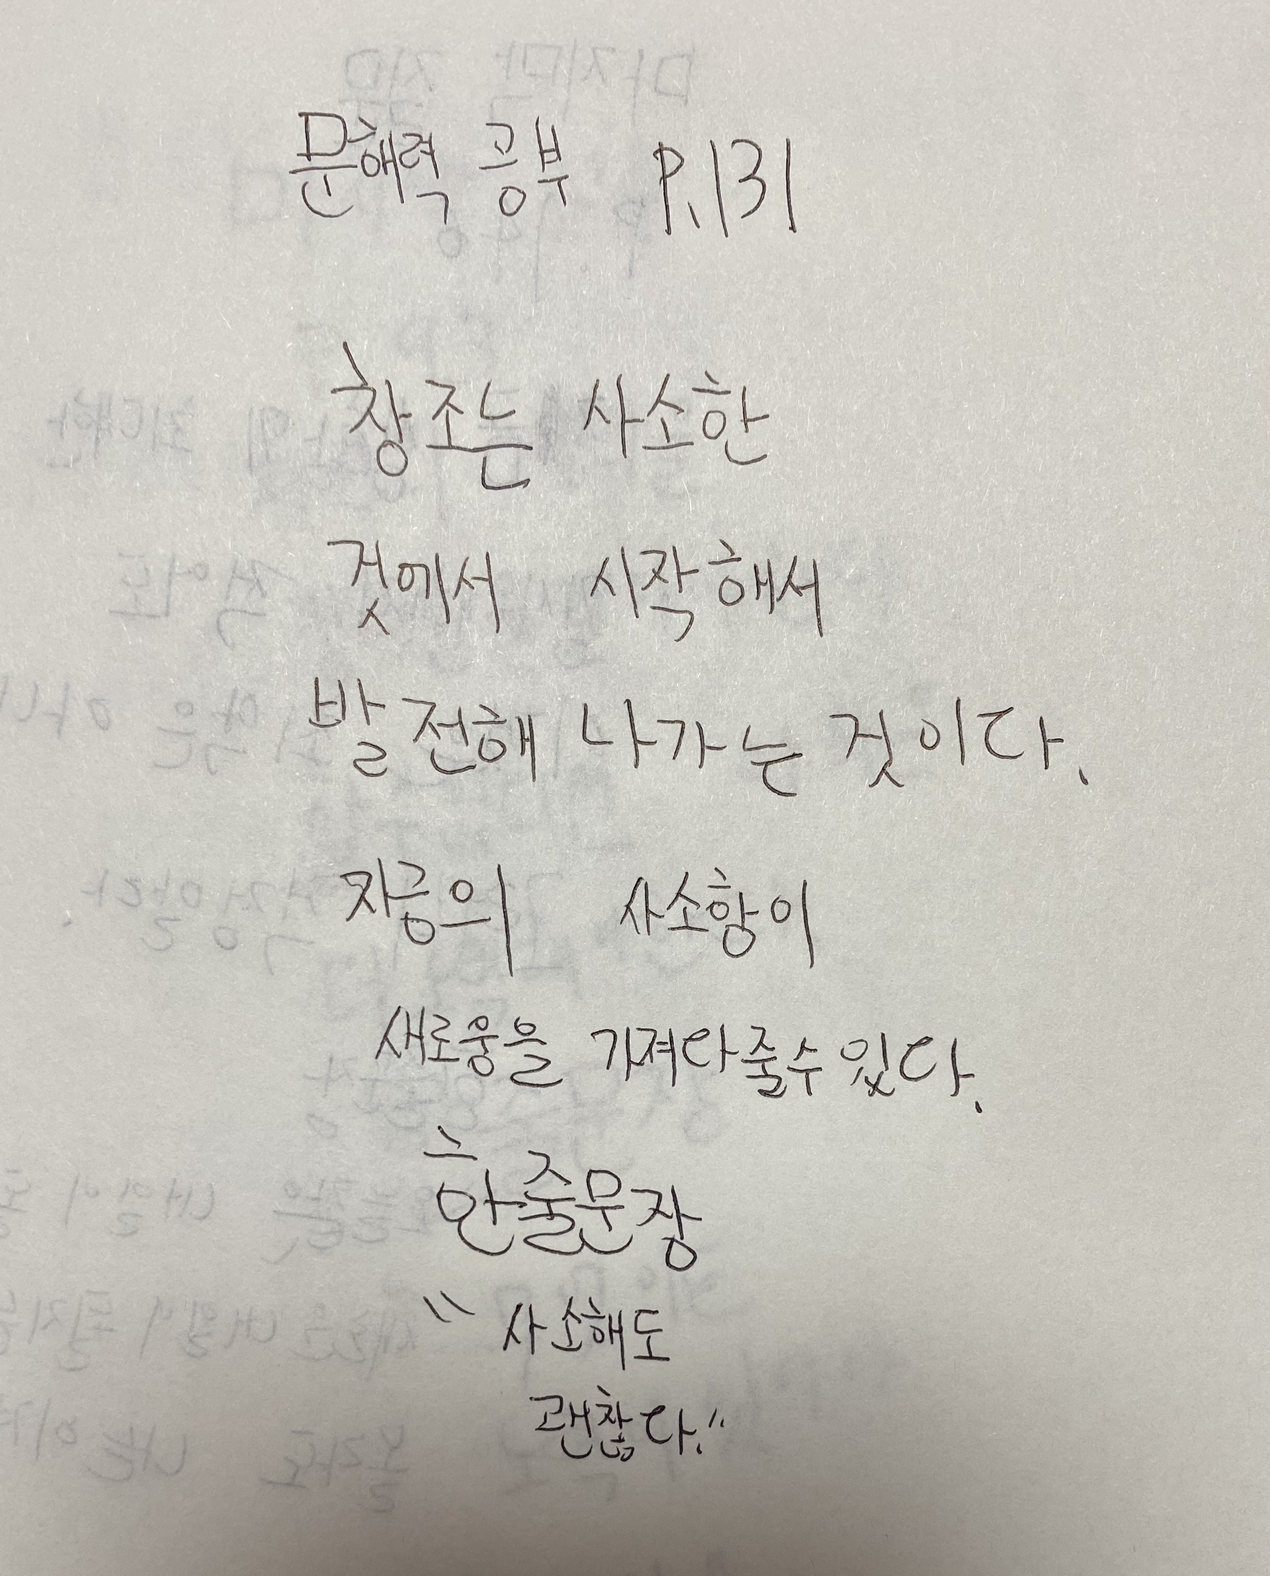 문해력 공부 P.131
창조는 사소한
것에서 시작해서
발전해 나가는 것이다.
지금의 사소함이
새로움을 가져다줄수 있다.
한줄문장
"사소해도
괜찮다."